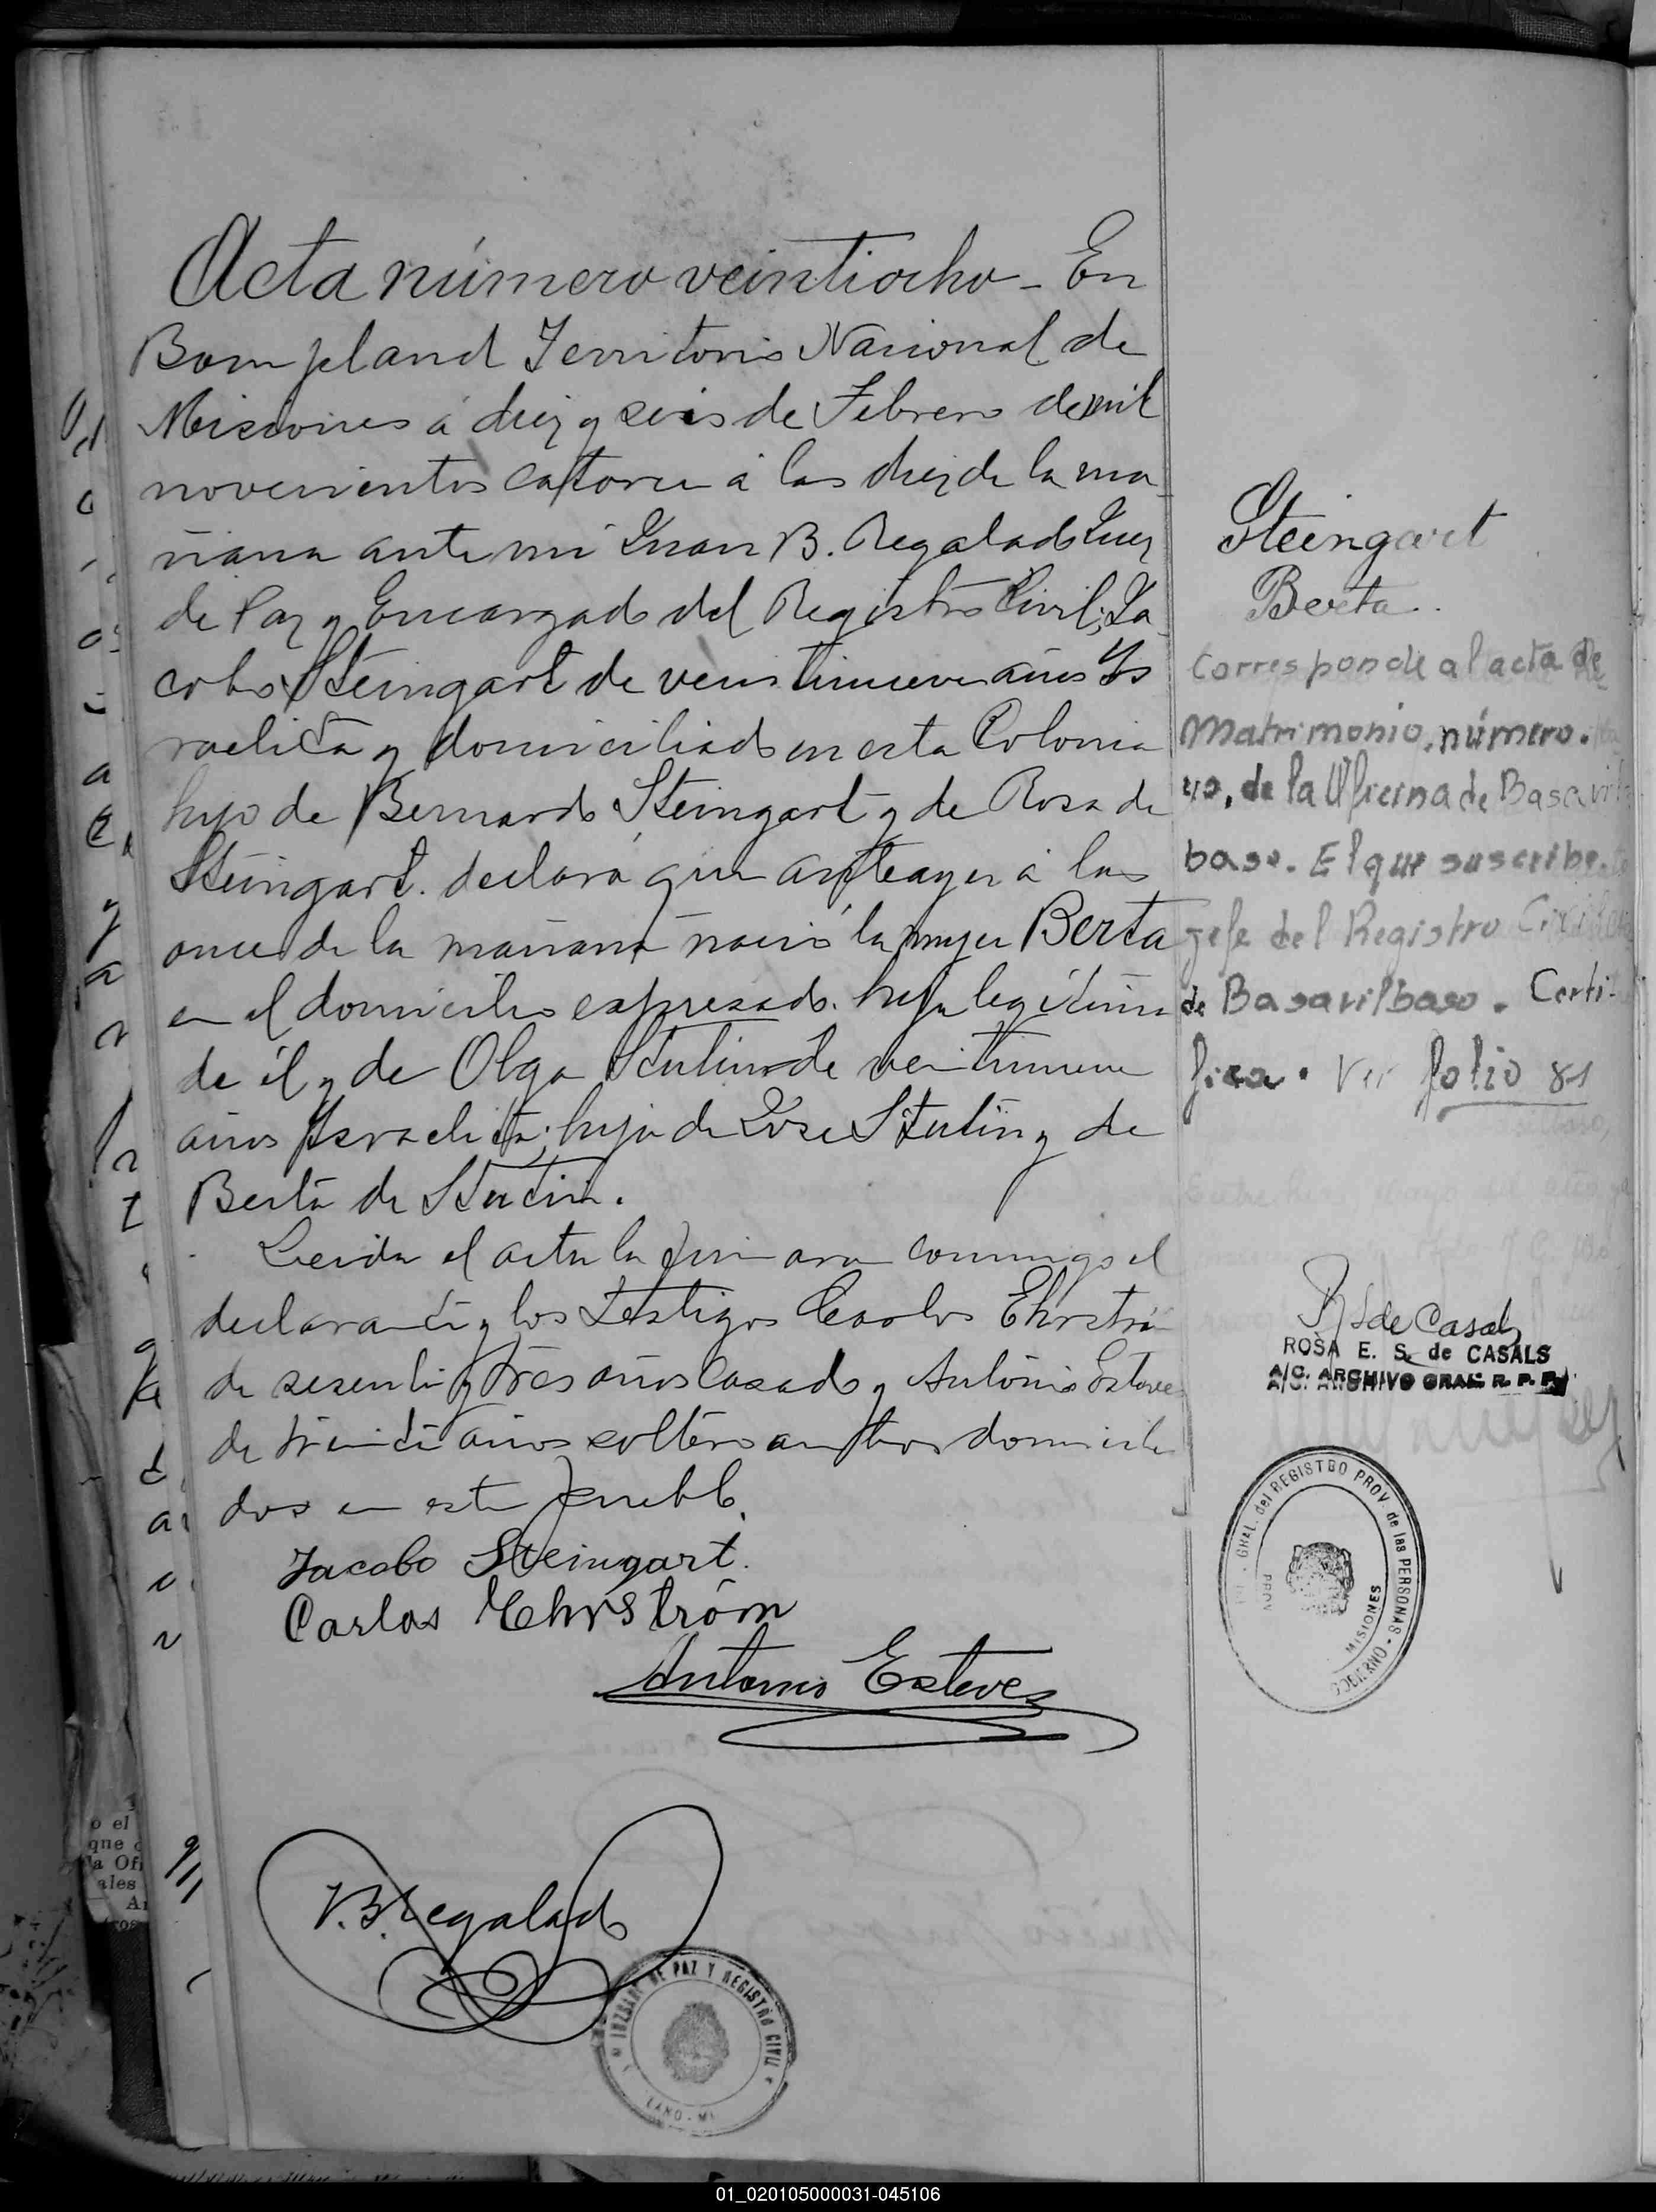 Acta número veintiocho - En
Bompland Territorio Nacional de
Misiones á diez y seis de Febrero de mil
novecientos catorce á las diez de la ma-
ñana ante mi Juan B. Regalado Juez
de Paz y Encargado del Registro Civil, Ja-
cobo Steingart de veintinueve años Ys
raelita y domiciliado en esta Colonia
hijo de Bernardo Steingart y de Rosa de
Steingart. declaró que anteayer á las
once de la mañana nació la mujer Berta
en el domicilio expresado. hija legítima
de él y de Olga de veintinueve
años Israelita; hija de José y de
Berta de
Leida el acta la firmaron conmigo el
declarante y los testigos Carlos Ehrströ
de sesenta y tres años Casado y Antonio Esteves
de treinta años soltero ambos domicilia
dos en este pueblo.
Jacobo Steingart.
Carlos Ehrström
Antonio Esteves
J.B. Regalado
JUZGADO DE PAZ Y REGISTRO CIVIL
LAND - MI
Steingart
Berta.
Corresponde al acta de
Matrimonio, número.
40, de la Oficina de Basavil
baso. El que suscribe
Jefe del Registro Civil
de Basavilbaso. Certi-
fica. Ver folio 81
R S de Casals
ROSA E. S. de CASALS
A/C. ARCHIVO GRAL. R. P. P.
GRAL. del REGISTRO PROV. de las PERSONAS - GOBIERNO
PROV
MISIONES
o el
que
la Ofi
ales
01_020105000031-045106